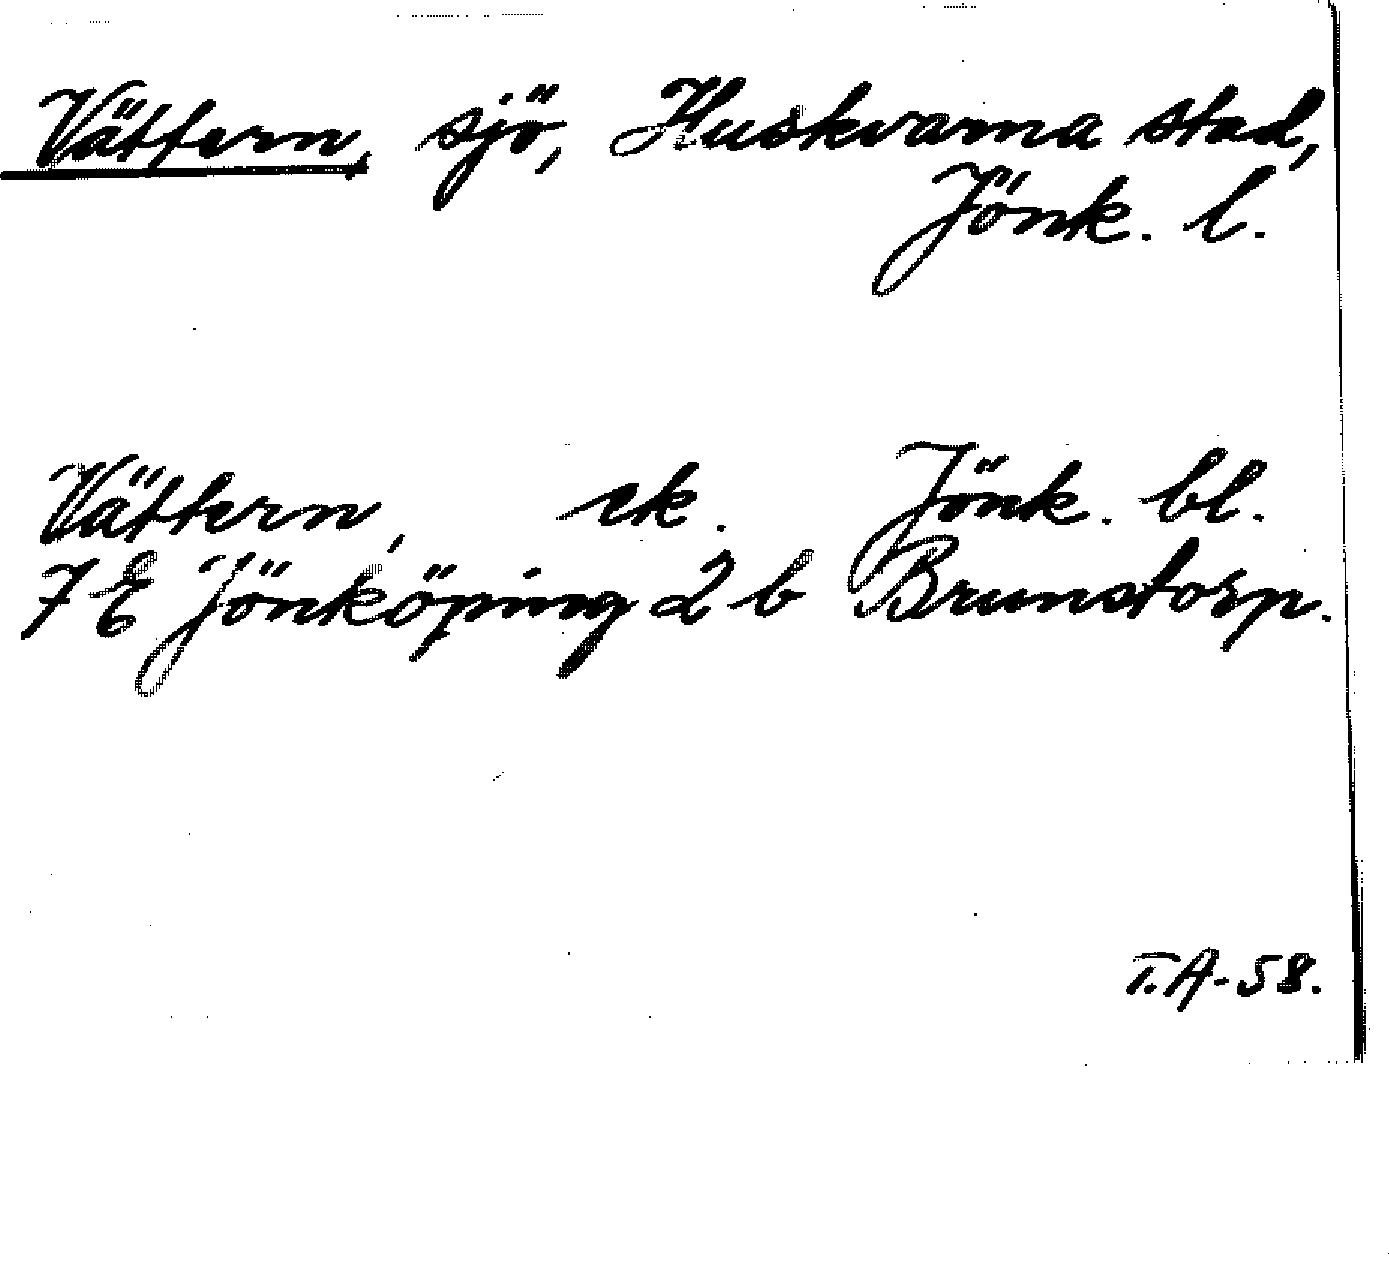 Vättern, sjö, Huskvarna stad,
Jönk. l.
Vättern, ek. Jönk. bl.
7 E Jönköping 2 b Brunstorp.
T.A-58.